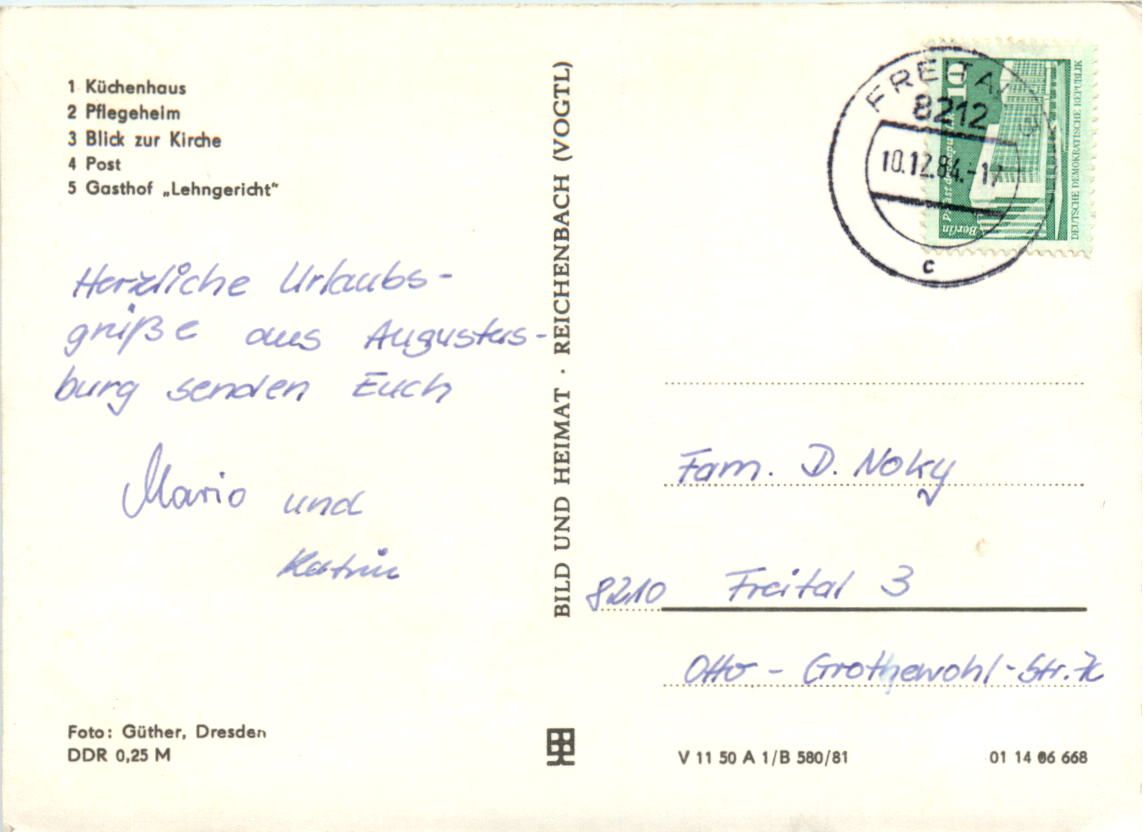 1 Küchenhaus
2 Pflegeheim
3 Blick zur Kirche
4 Post
5 Gasthof „Lehngericht"
Herzliche Urlaubs-
grüße aus Augustus-
burg senden Euch
Mario und
Katrin
Foto: Güther, Dresden
DDR 0,25 M
BILD UND HEIMAT · REICHENBACH (VOGTL)
FREITAL
8212
10.12.84.-17
c
10
Palast der Republik
Berlin
DEUTSCHE DEMOKRATISCHE REPUBLIK
Fam. D. Noky
8210 Freital 3
Otto - Grothewohl-Str.
V 11 50 A 1/B 580/81
01 14 06 668